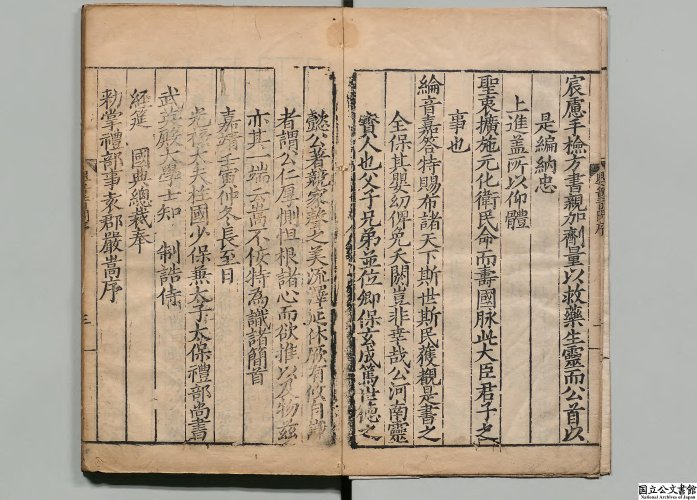 宸慮手檢方書親加劑量以救藥生靈而公首以
是編納忠
上進蓋所以仰體
聖衷擴施元化衛民命而壽國脉此大臣君子之
事也
綸音嘉答特賜布諸天下斯世斯民獲覩是書之
全保其嬰幼俾免夭閼豈非幸哉公河南靈
寳人也父子兄弟並位卿保玄成篤世德之
懿公著競家教之美流澤延休厥有攸自識
者謂公仁厚惻怛根諸心而欲推以及物玆
亦其一端云嵩不佞特為識諸簡首
嘉靖壬寅仲冬長至日
光祿大夫柱國少保兼太子太保禮部尚書
武英殿大學士知 制誥侍
經筵 國典總裁奉
勑掌禮部事袁郡嚴嵩序
三
国立公文書館
National Archives of Japan